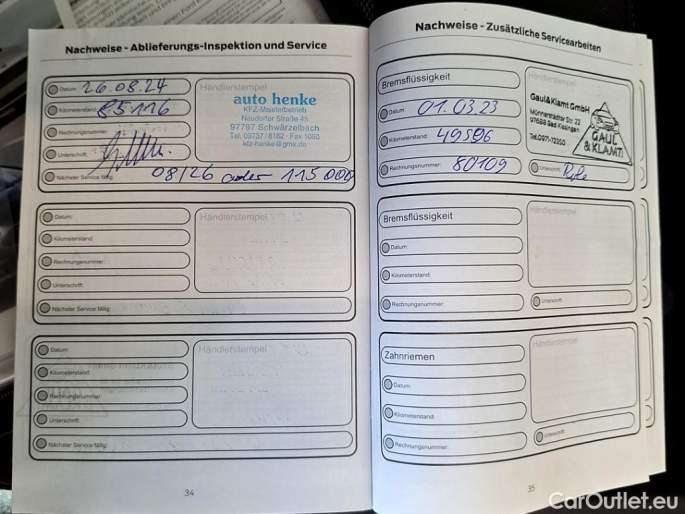 Nachweise - Ablieferungs-Inspektion und Service
Datum: 26.08.24
Kilometerstand: 85116
Rechnungsnummer:
Unterschrift:
Nächster Service fällig: 08/26 oder 115 000
Händlerstempel
auto henke
KFZ-Meisterbetrieb
Neudorfer Straße 43
97797 Schwärzelbach
Tel. 09737/8182 · Fax 1093
kfz-henke@gmx.de
Datum:
Kilometerstand:
Rechnungsnummer:
Unterschrift:
Nächster Service fällig:
Händlerstempel
Datum:
Kilometerstand:
Rechnungsnummer:
Unterschrift:
Nächster Service fällig:
Händlerstempel
34
Nachweise - Zusätzliche Servicearbeiten
Bremsflüssigkeit
Datum: 01.03.23
Kilometerstand: 49596
Rechnungsnummer: 80109
Händlerstempel
Gaul&Klamt GmbH
Münnerstädter Str. 22
97688 Bad Kissingen
GAUL
& KLAMT
Unterschrift:
Bremsflüssigkeit
Datum:
Kilometerstand:
Rechnungsnummer:
Händlerstempel
Unterschrift:
Zahnriemen
Datum:
Kilometerstand:
Rechnungsnummer:
Händlerstempel
Unterschrift:
35
CarOutlet.eu